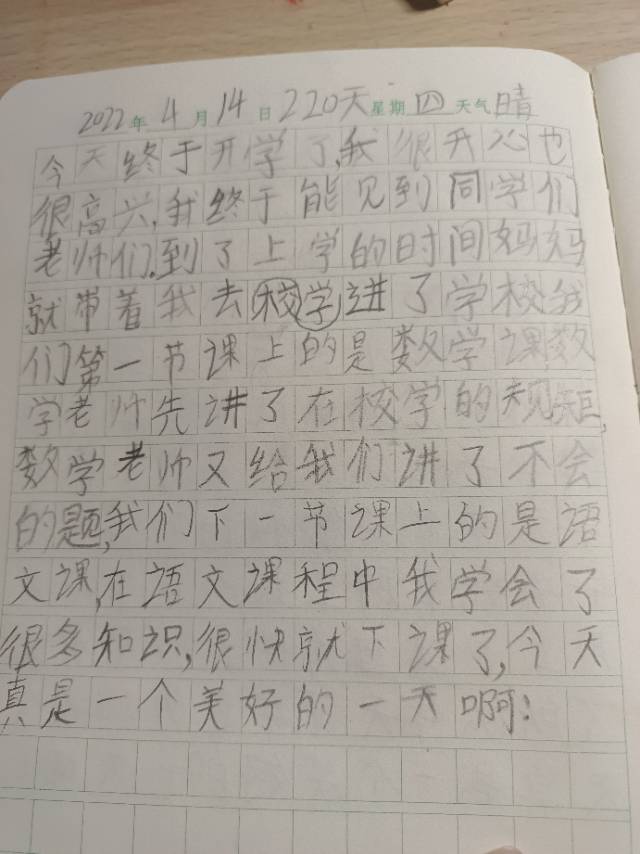 2022年4月14日220天星期四天气晴
今天终于开学了,我很开心也
很高兴,我终于能见到同学们
老师们.到了上学的时间妈妈
就带着我去校学进了学校我
们第一节课上的是数学课,数
学老师先讲了在校学的规矩,
数学老师又给我们讲了不会
的题,我们下一节课上的是语
文课,在语文课程中我学会了
很多知识,很快就下课了,今天
真是一个美好的一天啊!